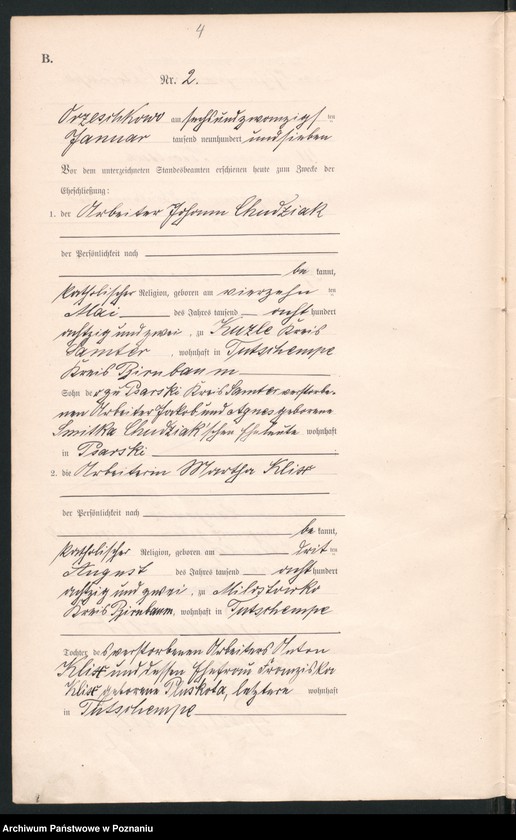 4
B.
Nr. 2.
Orzeschkowo am sechsundzwanzigs ten
Januar tausend neunhundert undsieben
Vor dem unterzeichneten Standesbeamten erschienen heute zum Zwecke der
Eheschließung:
1. der Arbeiter Johann Chudziak
der Persönlichkeit nach
be kannt,
katholischer Religion, geboren am vierzehn ten
Mai des Jahres tausend acht hundert
achtzig und zwei, zu Kuzle Kreis
Samter, wohnhaft in Tutschempe
Kreis Birnbaum
Sohn der zu Psarski Kreis Samter verstorbe-
nen Arbeiter Jakob und Agnes geborene
Smitka Chudziak'schen Eheleute wohnhaft
in Psarski
2. die Arbeiterin Martha Klix
der Persönlichkeit nach
be kannt,
katholischer Religion, geboren am drit ten
August des Jahres tausend acht hundert
achtzig und zwei, zu Milostowko
Kreis Birnbaum, wohnhaft in Tutschempe
Tochter des verstorbenen Arbeiters Anton
Klix und dessen Ehefrau Franziska
Klix, geborene Pluskota, letztere wohnhaft
in Tutschempe
Archiwum Państwowe w Poznaniu